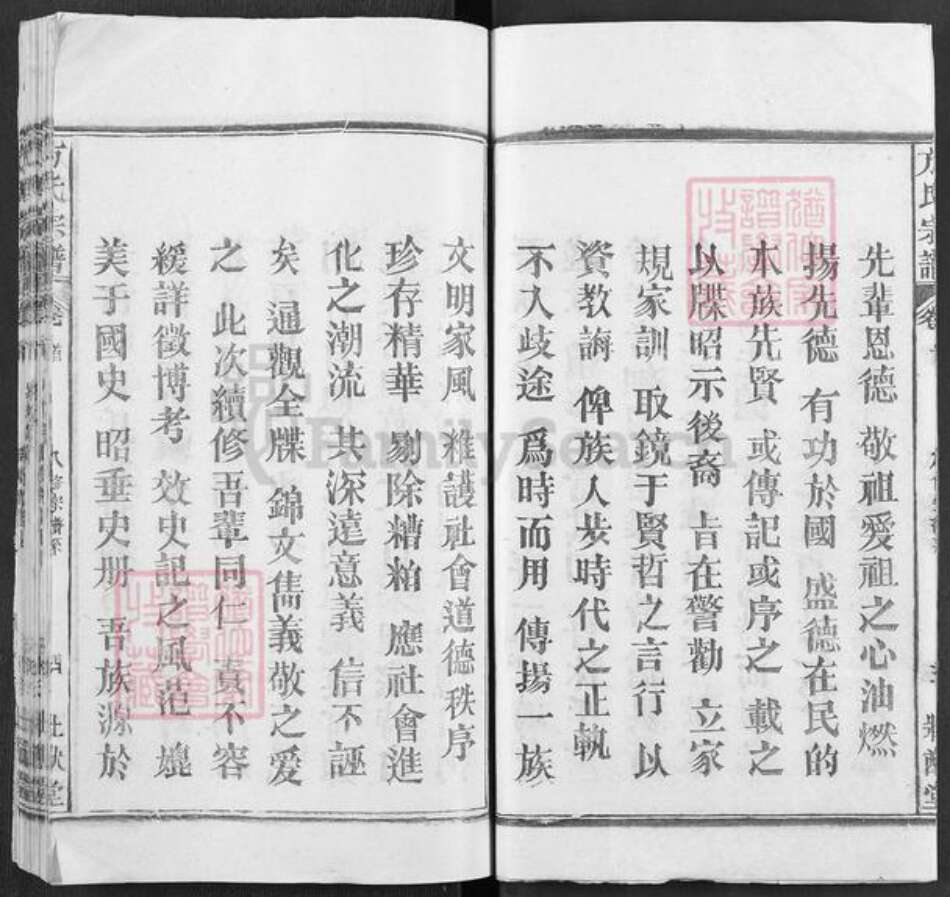 先輩恩德 敬祖愛祖之心油燃
揚先德 有功於國 盛德在民的
本族先賢 或傳記或序之 載之
以牒昭示後裔 旨在警勸 立家
規家訓 取鏡于賢哲之言行 以
資教誨 俾族人步時代之正軌
不入歧途 爲時而用 傳揚一族
文明家風 維護社會道德秩序
珍存精華 剔除糟粕 應社會進
化之潮流 其深遠意義 信不誣
矣 通觀全牒 錦文雋義敬之愛
之 此次續修吾輩同仁 責不容
緩詳徵博考 效史記之風范
美于國史 昭垂史册 吾族源於
方氏宗譜
FamilySearch